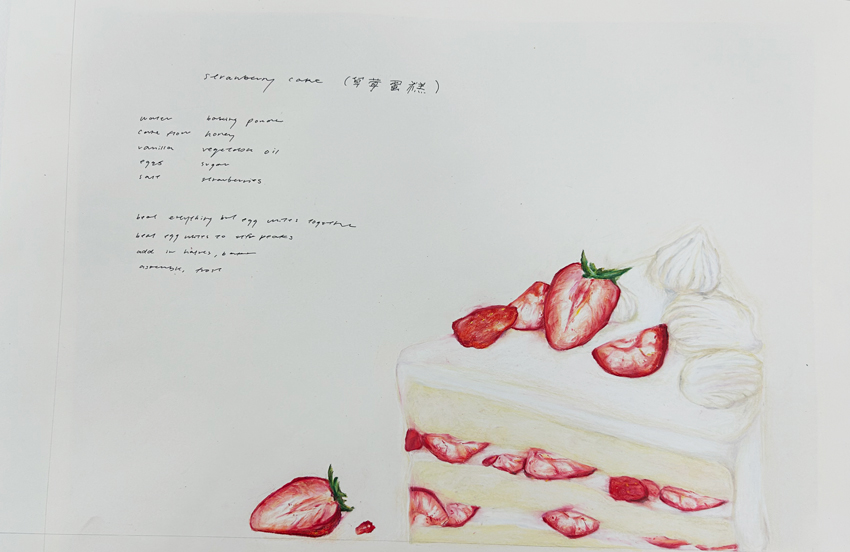 strawberry cake (草莓蛋糕)
water baking powder
cake flour honey
vanilla vegetable oil
eggs sugar
salt strawberries
beat everything but egg whites together
beat egg whites to stiff peaks
add in thirds,
assemble, frost